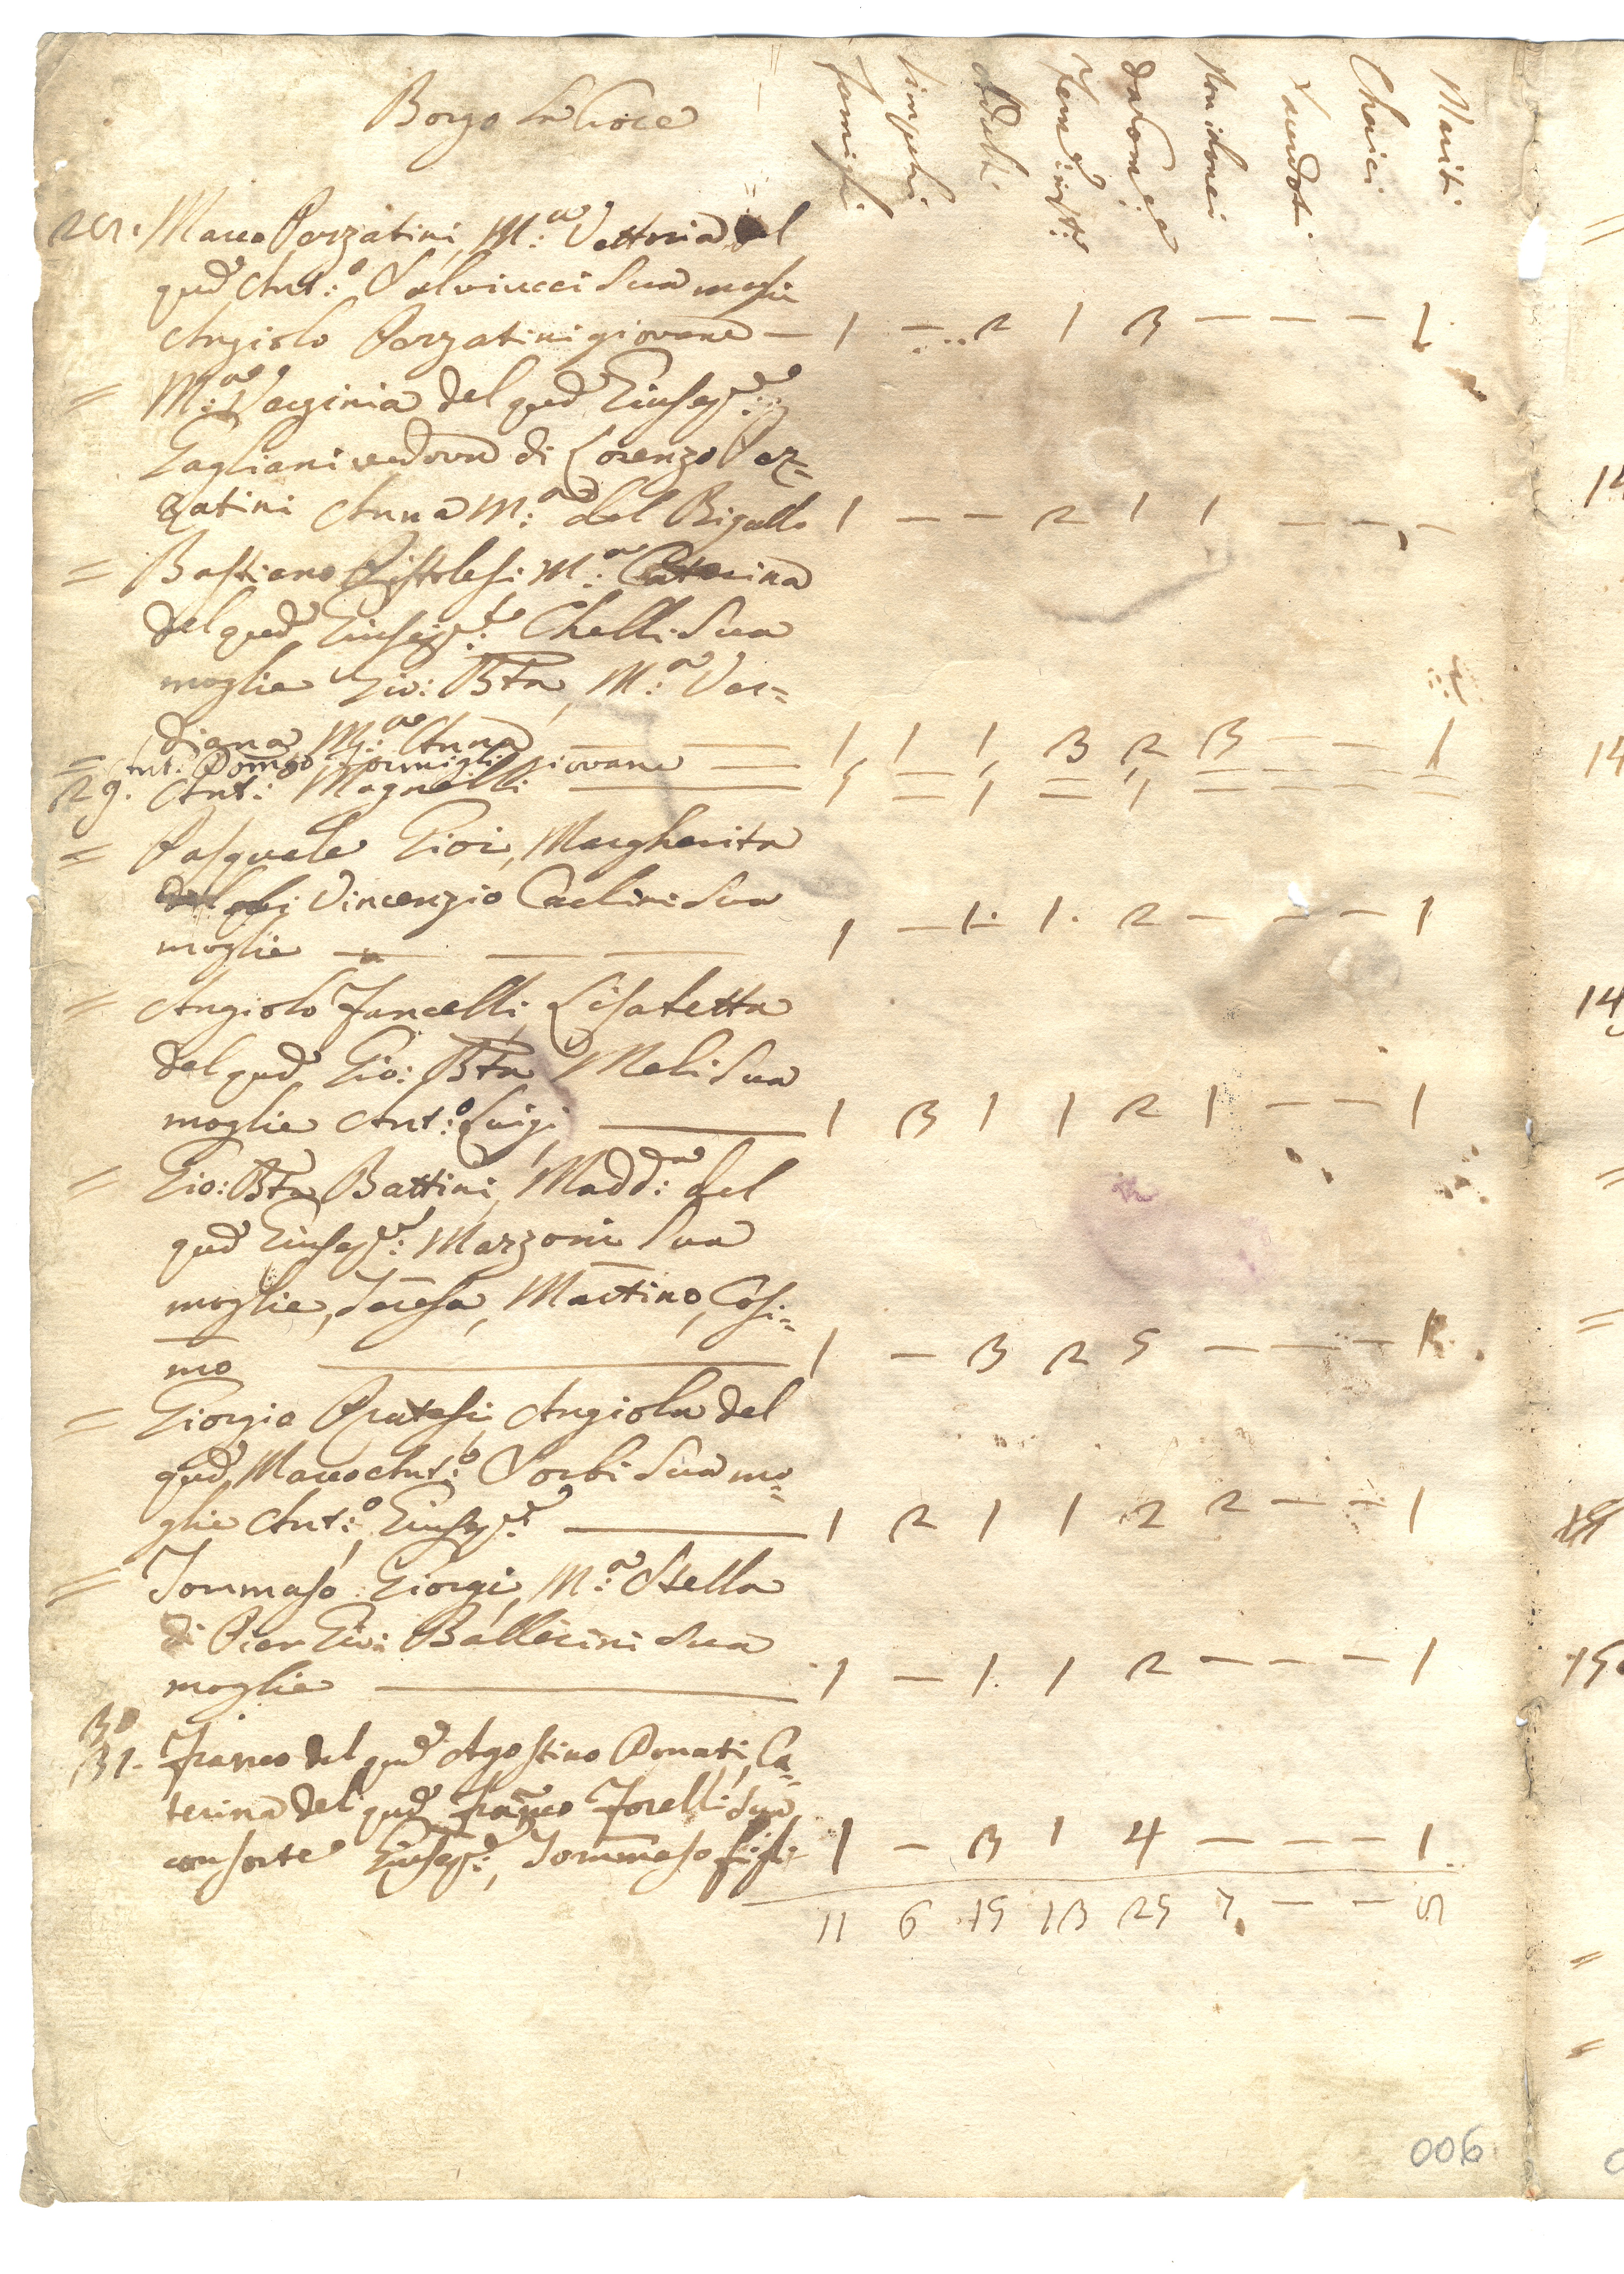 Borgo La Croce
Famiglie
Semplici
Adulti
Femine
da Com:ne
Non idonei
Sacerdoti
Cherici
Mariti
Marco Perzatini, M:a Vettoria del
qud Ant:o Salviucci Sua moglie
Angiolo Perzatini giovane — 1 — 2 1 3 — — — 1
= M:a Verginia del qud Giusep:e
Gagliani vedova di Lorenzo Per=
zatini Anna M:a del Bigallo 1 — — 2 1 1 — — —
= Bastiano Pistolesi M:a Caterina
del qud Giusep:e Chelli Sua
moglie Gio: Bta, M:a Ver=
diana M:a Anna — — 1 1 1 3 2 3 — — 1
= Ant: Domco Formigli giovane — 1 — 1 = 1 = — — =
29. Ant: Magnelli
= Pasquale Giori, Margherita
di Vincenzio Carlini Sua
moglie — — — 1 — 1. 1. 2 — — — 1
= Angiolo Fancelli Lisabetta
del qud Gio: Bta Meli Sua
moglie Ant:o Luigi — 1 3 1 1 2 1 — — 1
= Gio: Bta Battini, Madd:na del
qud Giusep:e Marzoni Sua
moglie, Teresa, Martino, Cosi=
mo — 1 — 3 2 5 — — — 1
= Giorgio Pratesi, Angiola del
qud Marco Ant:o Sorbi Sua mo=
glie Ant:o, Giusep:e — 1 2 1 1 2 2 — — 1
= Tommaso Giorgi, M:a Stella
di Pier Gio: Ballerini Sua
moglie — 1 — 1. 1 2 — — — 1
30
31. Franco del qud Agostino Donati, Ca=
terina del qud Franco Torelli Sua
consorte Giusep:e, Tommaso figli 1 — 3 1 4 — — — 1.
11 6 15 13 25 7 — —
006